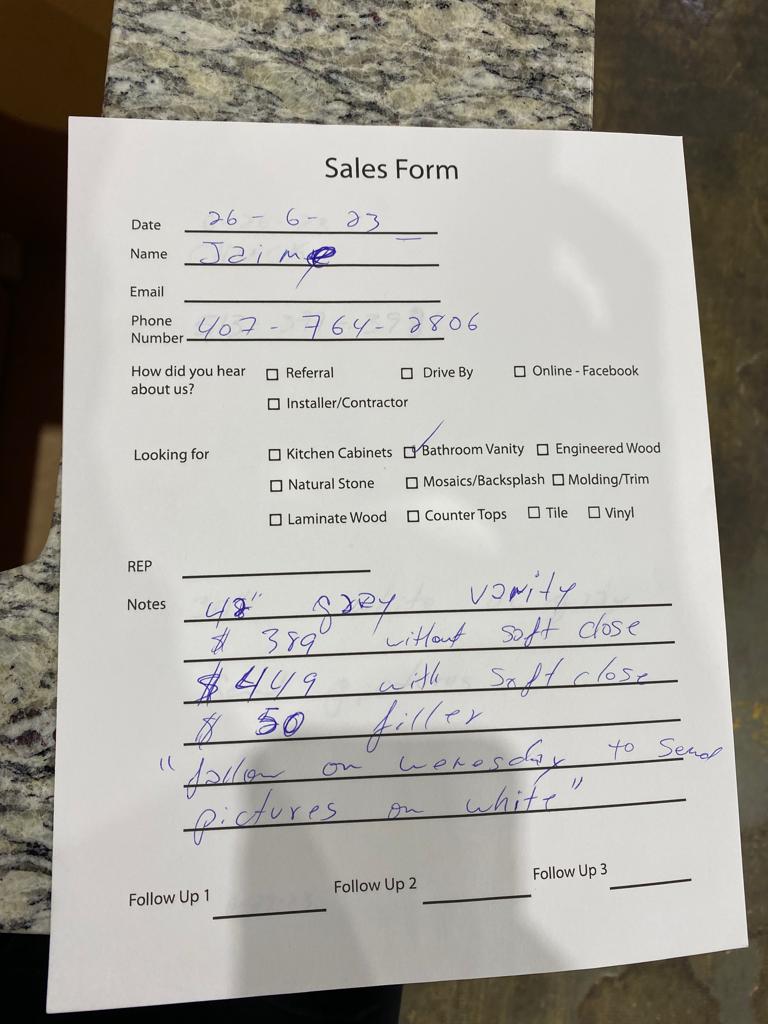 Sales Form
Date 26 - 6 - 23
Name Jaime
Email
Phone Number 407 - 764 - 2806
How did you hear about us? ☐ Referral ☐ Drive By ☐ Online - Facebook
☐ Installer/Contractor
Looking for ☐ Kitchen Cabinets ☑ Bathroom Vanity ☐ Engineered Wood
☐ Natural Stone ☐ Mosaics/Backsplash ☐ Molding/Trim
☐ Laminate Wood ☐ Counter Tops ☐ Tile ☐ Vinyl
REP
Notes 48" grey vanity
$ 389 without soft close
$ 449 with soft close
$ 50 filler
"follow on wenesday to send
pictures on white"
Follow Up 1 Follow Up 2 Follow Up 3